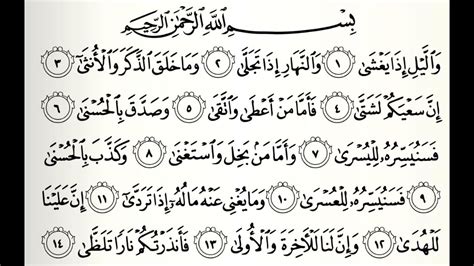 بِسْمِ اللَّهِ الرَّحْمَٰنِ الرَّحِيمِ
وَالَّيْلِ إِذَا يَغْشَىٰ ١ وَالنَّهَارِ إِذَا تَجَلَّىٰ ٢ وَمَا خَلَقَ الذَّكَرَ وَالْأُنثَىٰ ٣
إِنَّ سَعْيَكُمْ لَشَتَّىٰ ٤ فَأَمَّا مَنْ أَعْطَىٰ وَاتَّقَىٰ ٥ وَصَدَّقَ بِالْحُسْنَىٰ ٦
فَسَنُيَسِّرُهُ لِلْيُسْرَىٰ ٧ وَأَمَّا مَنْ بَخِلَ وَاسْتَغْنَىٰ ٨ وَكَذَّبَ بِالْحُسْنَىٰ
٩ فَسَنُيَسِّرُهُ لِلْعُسْرَىٰ ١٠ وَمَا يُغْنِي عَنْهُ مَالُهُ إِذَا تَرَدَّىٰ ١١ إِنَّ عَلَيْنَا
لَلْهُدَىٰ ١٢ وَإِنَّ لَنَا لَلْآخِرَةَ وَالْأُولَىٰ ١٣ فَأَنذَرْتُكُمْ نَارًا تَلَظَّىٰ ١٤